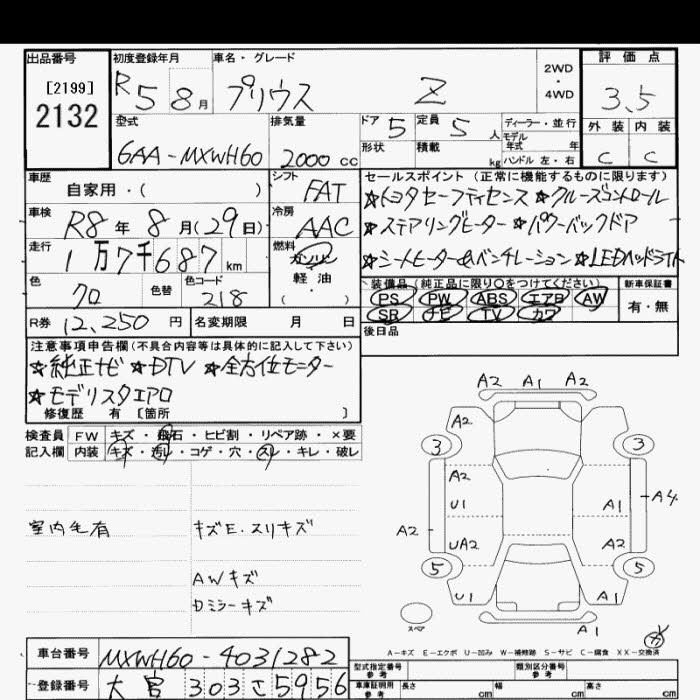 出品番号 初度登録年月 車名・グレード 2WD・4WD 評価点
[2199] 2132 R5 8月 プリウス Z 3.5
型式 排気量 ドア 5 定員 5人 ディーラー・並行 外装 内装
6AA-MXWH60 2000cc 形状 積載 kg モデル年式 年 ハンドル 左・右 C C
車歴 シフト セールスポイント (正常に機能するものに限ります)
自家用・( ) FAT ☆トヨタセーフティセンス ☆クルーズコントロール
車検 冷房 ☆ステアリングヒーター ☆パワーバックドア
R8年 8月(29日) AAC
走行 燃料 ☆シートヒーター&ベンチレーション ☆LEDヘッドライト
1万7千687km ガソリン 軽油 ( )
色 色替 色コード 装備品 (純正品に限り○をつけてください) 新車保証書
クロ 218 PS PW ABS エアB AW 有・無
SR ナビ TV カワ
R券 12,250円 名変期限 月 日 後日品
注意事項申告欄(不具合内容等は具体的に記入して下さい)
☆純正ナビ ☆DTV ☆全方位モニター
☆モデリスタエアロ
修復歴 有 [箇所 ]
検査員 FW キズ・飛石・ヒビ割・リペア跡・×要
記入欄 内装 キズ・汚レ・コゲ・穴・スレ・キレ・破レ
室内毛有 キズE.スリキズ
AWキズ
Dミラーキズ
A2 A1 A2
A2
3 3
A2
U1 A1 A4
A2
UA2 A2
5 5
U1 A1
スペア A1
A-キズ E-エクボ U-凹み W-補修跡 S-サビ C-腐食 XX-交換済
車台番号 MXWH60-4031282 型式指定番号 参考 類別区分番号 参考
登録番号 大宮 303 さ 5956 車庫証明用 参考 長さ cm 幅 cm 高さ cm